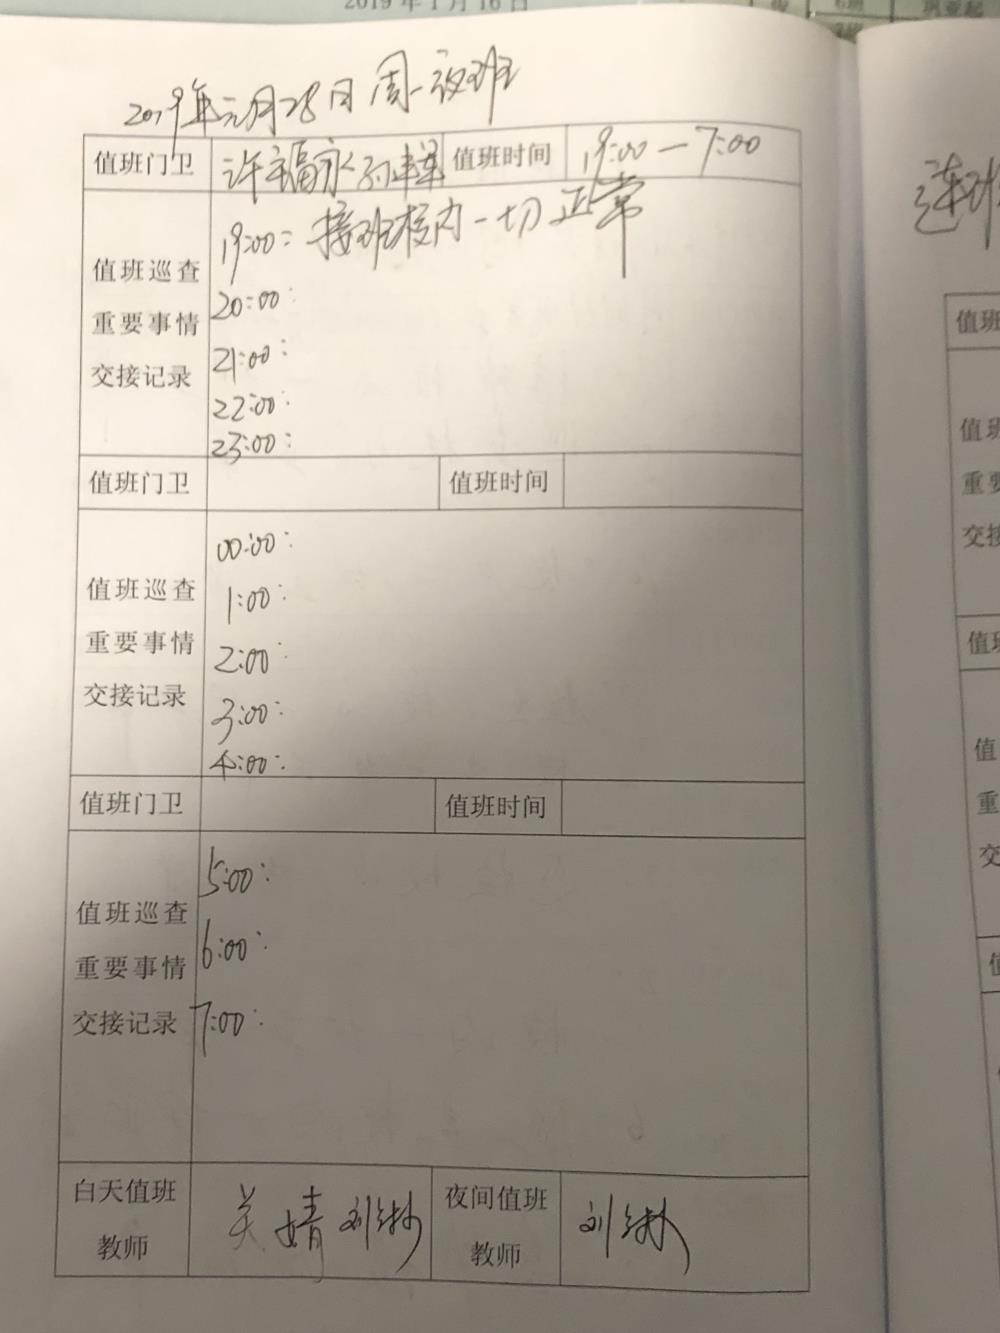 2019年1月16日
2019年元月28日 周一夜班
值班门卫 许福永 值班时间 19:00—7:00
值班巡查
重要事情
交接记录
19:00: 接班校内一切正常
20:00:
21:00:
22:00:
23:00:
值班门卫 值班时间
值班巡查
重要事情
交接记录
00:00:
1:00:
2:00:
3:00:
4:00:
值班门卫 值班时间
值班巡查
重要事情
交接记录
5:00:
6:00:
7:00:
白天值班
教师
关婧 刘
夜间值班
教师
刘
值班
值班
重要
交接
值班
值
重
交
值